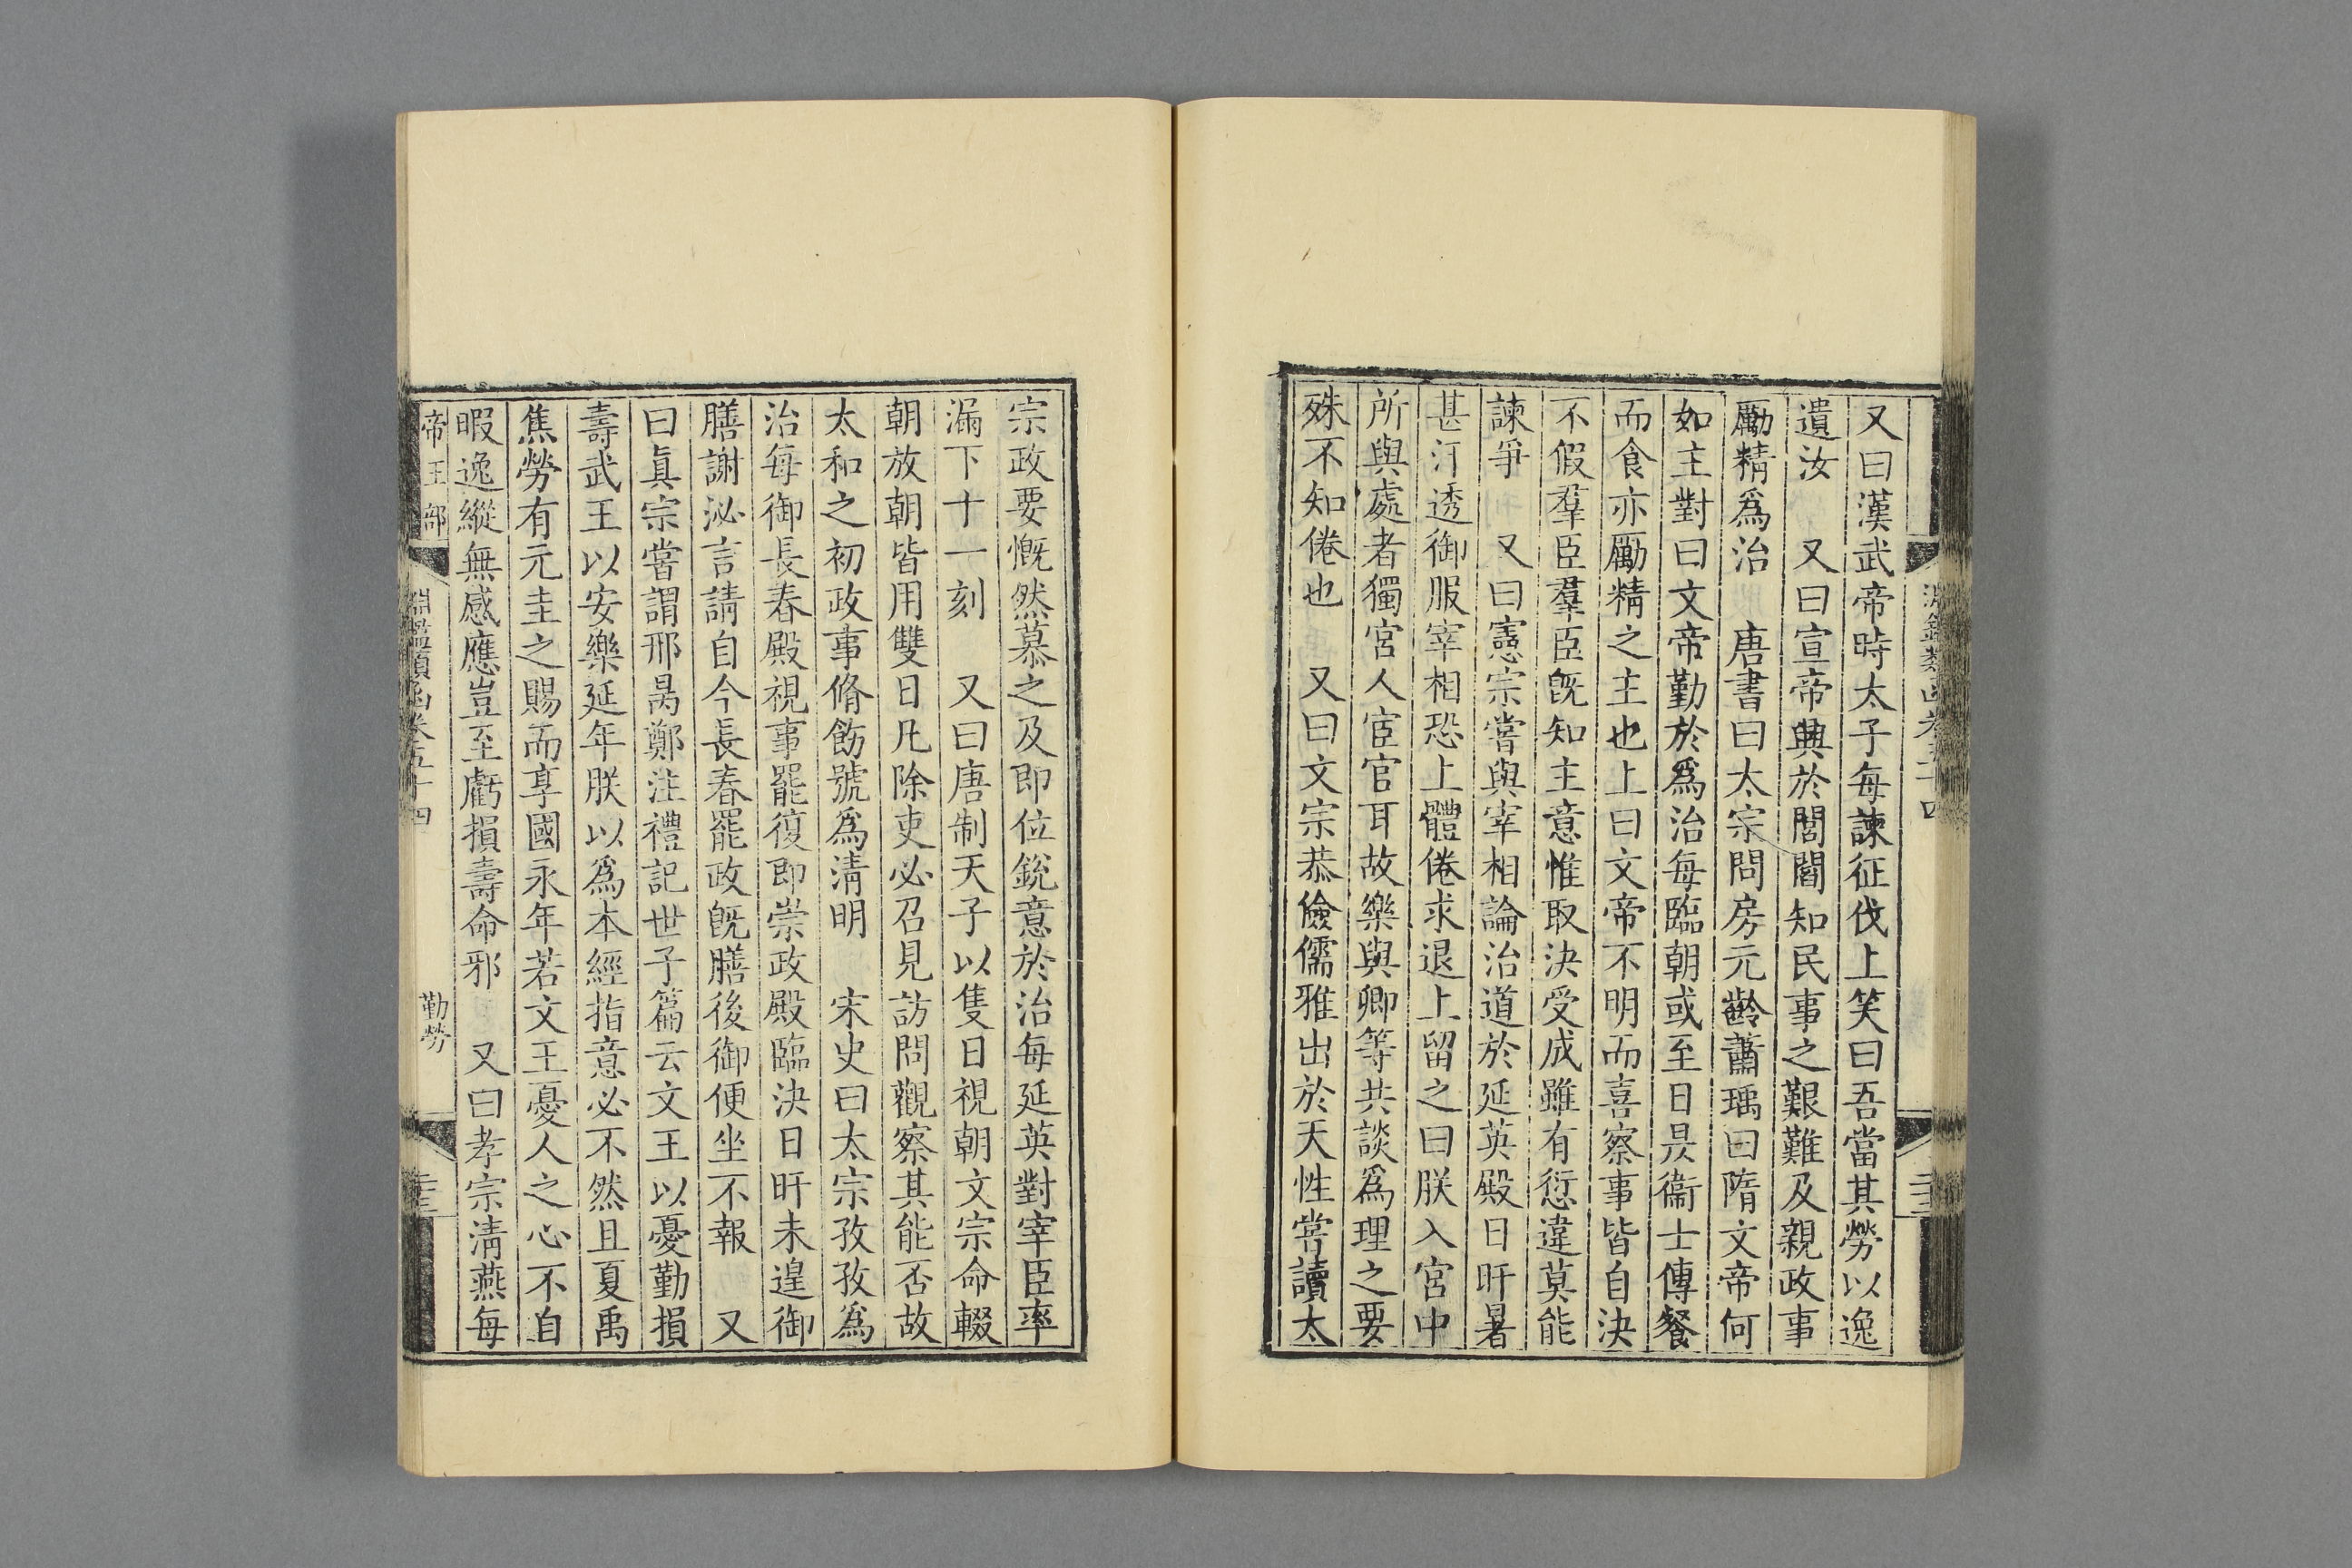 又曰漢武帝時太子每諫征伐上笑曰吾當其勞以逸
遺汝　又曰宣帝興於閭閻知民事之艱難及親政事
勵精爲治　唐書曰太宗問房元齡蕭瑀曰隋文帝何
如主對曰文帝勤於爲治每臨朝或至日昃衞士傳餐
而食亦勵精之主也上曰文帝不明而喜察事皆自決
不假羣臣羣臣旣知主意惟取決受成雖有愆違莫能
諫爭　又曰憲宗嘗與宰相論治道於延英殿日旰暑
甚汗透御服宰相恐上體倦求退上留之曰朕入宮中
所與處者獨宮人宦官耳故樂與卿等共談爲理之要
殊不知倦也　又曰文宗恭儉儒雅出於天性嘗讀太
宗政要慨然慕之及即位銳意於治每延英對宰臣率
漏下十一刻　又曰唐制天子以隻日視朝文宗命輟
朝放朝皆用雙日凡除吏必召見訪問觀察其能否故
太和之初政事脩飭號爲淸明　宋史曰太宗孜孜爲
治每御長春殿視事罷復即崇政殿臨決日旰未遑御
膳謝泌言請自今長春罷政旣膳後御便坐不報　又
曰眞宗嘗謂邢昺鄭注禮記世子篇云文王以憂勤損
壽武王以安樂延年朕以爲本經指意必不然且夏禹
焦勞有元圭之賜而享國永年若文王憂人之心不自
暇逸縱無感應豈至虧損壽命邪　又曰孝宗淸燕每
帝王部
淵鑑類函卷五十四
勤勞